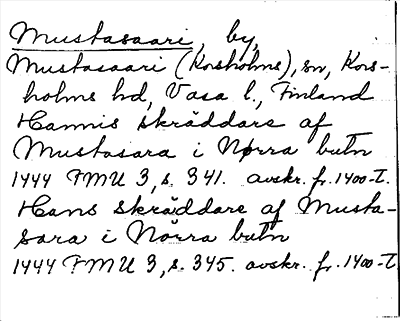 Mustasaari, by,
Mustasaari (Korsholms), sn, Kors-
holms hd, Vasa l., Finland
Hannis skräddare af
Mustasara i Nørra butn
1444 FMU 3, s. 341. avskr. fr. 1400-t.
Hans skräddare af Musta-
sara i Nörra butn
1444 FMU 3, s. 345. avskr. fr. 1400-t.